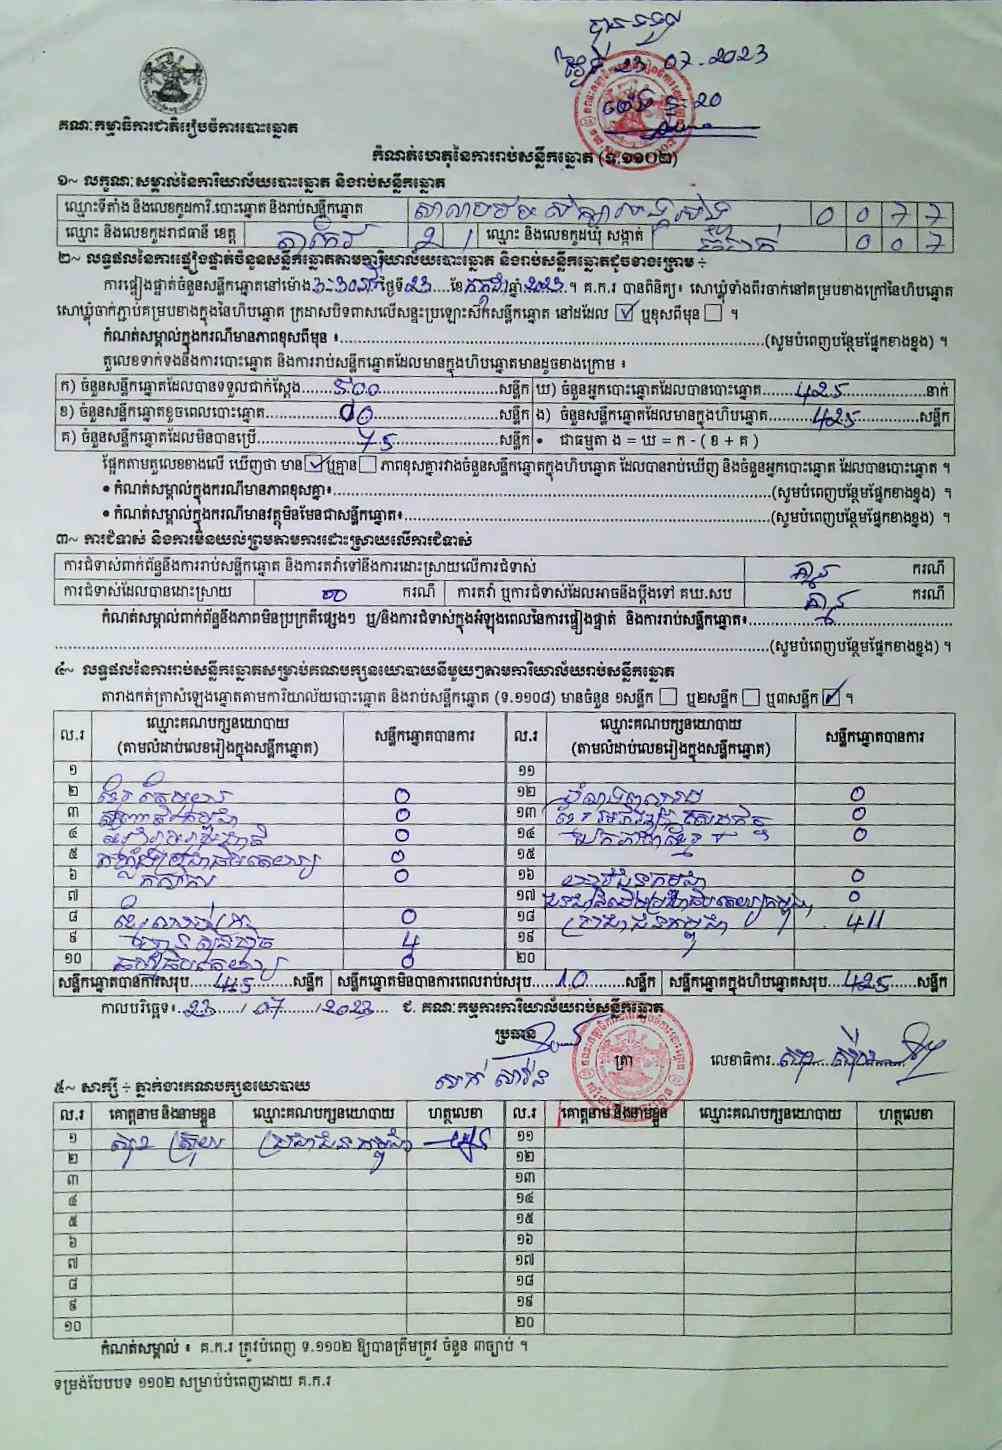 បានទទួល
ថ្ងៃទី 23 . 07 . 2023
គណៈកម្មាធិការជាតិរៀបចំការបោះឆ្នោត
កំណត់ហេតុនៃការរាប់សន្លឹកឆ្នោត (ទ.១១០២)
១~ លក្ខណៈសម្គាល់នៃការិយាល័យបោះឆ្នោត និងរាប់សន្លឹកឆ្នោត
ឈ្មោះទីតាំង និងលេខកូដការិ.បោះឆ្នោត និងរាប់សន្លឹកឆ្នោត 0 0 7 7
ឈ្មោះ និងលេខកូដរាជធានី ខេត្ត តាកែវ 2 1 ឈ្មោះ និងលេខកូដឃុំ សង្កាត់ 0 0 7
២~ លទ្ធផលនៃការផ្ទៀងផ្ទាត់ចំនួនសន្លឹកឆ្នោតតាមការិយាល័យបោះឆ្នោត និងរាប់សន្លឹកឆ្នោតដូចខាងក្រោម ÷
ការផ្ទៀងផ្ទាត់ចំនួនសន្លឹកឆ្នោតនៅម៉ោង 3:30 ថ្ងៃទី 23 ខែ កក្កដា ឆ្នាំ 2023 ។ គ.ក.រ បានពិនិត្យ៖ សោឃ្លុំទាំងពីរចាក់នៅគម្របខាងក្រៅនៃហិបឆ្នោត
សោឃ្លុំចាក់ភ្ជាប់គម្របខាងក្នុងនៃហិបឆ្នោត ក្រដាសបិទពាសលើសន្ទះប្រឡោះស៊កសន្លឹកឆ្នោត នៅដដែល ☑ ឬខុសពីមុន ☐ ។
កំណត់សម្គាល់ក្នុងករណីមានភាពខុសពីមុន ៖ (សូមបំពេញបន្ថែមផ្នែកខាងខ្នង) ។
តួលេខទាក់ទងនឹងការបោះឆ្នោត និងការរាប់សន្លឹកឆ្នោតដែលមានក្នុងហិបឆ្នោតមានដូចខាងក្រោម ៖
ក) ចំនួនសន្លឹកឆ្នោតដែលបានទទួលជាក់ស្តែង 500 សន្លឹក ឃ) ចំនួនអ្នកបោះឆ្នោតដែលបានបោះឆ្នោត 425 នាក់
ខ) ចំនួនសន្លឹកឆ្នោតខូចពេលបោះឆ្នោត 00 សន្លឹក ង) ចំនួនសន្លឹកឆ្នោតដែលមានក្នុងហិបឆ្នោត 425 សន្លឹក
គ) ចំនួនសន្លឹកឆ្នោតដែលមិនបានប្រើ 75 សន្លឹក • ជាធម្មតា ង = ឃ = ក - ( ខ + គ )
ផ្អែកតាមតួលេខខាងលើ ឃើញថា មាន ☑ ឬគ្មាន ☐ ភាពខុសគ្នារវាងចំនួនសន្លឹកឆ្នោតក្នុងហិបឆ្នោត ដែលបានរាប់ឃើញ និងចំនួនអ្នកបោះឆ្នោត ដែលបានបោះឆ្នោត ។
• កំណត់សម្គាល់ក្នុងករណីមានភាពខុសគ្នា៖ (សូមបំពេញបន្ថែមផ្នែកខាងខ្នង) ។
• កំណត់សម្គាល់ក្នុងករណីមានវត្ថុមិនមែនជាសន្លឹកឆ្នោត៖ (សូមបំពេញបន្ថែមផ្នែកខាងខ្នង) ។
៣~ ការជំទាស់ និងការមិនយល់ព្រមតាមការដោះស្រាយលើការជំទាស់
ការជំទាស់ពាក់ព័ន្ធនឹងការរាប់សន្លឹកឆ្នោត និងការតវ៉ាទៅនឹងការដោះស្រាយលើការជំទាស់ គ្មាន ករណី
ការជំទាស់ដែលបានដោះស្រាយ 00 ករណី ការតវ៉ា ឬការជំទាស់ដែលអាចនឹងប្តឹងទៅ គឃ.សប គ្មាន ករណី
កំណត់សម្គាល់ពាក់ព័ន្ធនឹងភាពមិនប្រក្រតីផ្សេងៗ ឬ/និងការជំទាស់ក្នុងអំឡុងពេលនៃការផ្ទៀងផ្ទាត់ និងការរាប់សន្លឹកឆ្នោត៖
(សូមបំពេញបន្ថែមផ្នែកខាងខ្នង) ។
៤~ លទ្ធផលនៃការរាប់សន្លឹកឆ្នោតសម្រាប់គណបក្សនយោបាយនីមួយៗតាមការិយាល័យរាប់សន្លឹកឆ្នោត
តារាងកត់ត្រាសំឡេងឆ្នោតតាមការិយាល័យបោះឆ្នោត និងរាប់សន្លឹកឆ្នោត (ទ.១១០៨) មានចំនួន ១សន្លឹក ☐ ឬ២សន្លឹក ☐ ឬ៣សន្លឹក ☑ ។
ល.រ ឈ្មោះគណបក្សនយោបាយ (តាមលំដាប់លេខរៀងក្នុងសន្លឹកឆ្នោត) សន្លឹកឆ្នោតបានការ ល.រ ឈ្មោះគណបក្សនយោបាយ (តាមលំដាប់លេខរៀងក្នុងសន្លឹកឆ្នោត) សន្លឹកឆ្នោតបានការ
១ ១១
២ 0 ១២ 0
៣ 0 ១៣ 0
៤ 0 ១៤ 0
៥ 0 ១៥
៦ 0 ១៦ 0
៧ ១៧ 0
៨ 0 ១៨ ប្រជាជនកម្ពុជា 411
៩ 4 ១៩
១០ 0 ២០
សន្លឹកឆ្នោតបានការសរុប សន្លឹក សន្លឹកឆ្នោតមិនបានការពេលរាប់សរុប 10 សន្លឹក សន្លឹកឆ្នោតក្នុងហិបឆ្នោតសរុប 425 សន្លឹក
កាលបរិច្ឆេទ៖ 23 / 07 / 2023 ជ. គណៈកម្មការការិយាល័យរាប់សន្លឹកឆ្នោត
ប្រធាន ត្រា លេខាធិការ
៥~ សាក្សី ÷ ភ្នាក់ងារគណបក្សនយោបាយ
ល.រ គោត្តនាម និងនាមខ្លួន ឈ្មោះគណបក្សនយោបាយ ហត្ថលេខា ល.រ គោត្តនាម និងនាមខ្លួន ឈ្មោះគណបក្សនយោបាយ ហត្ថលេខា
១ ប្រជាជនកម្ពុជា ១១
២ ១២
៣ ១៣
៤ ១៤
៥ ១៥
៦ ១៦
៧ ១៧
៨ ១៨
៩ ១៩
១០ ២០
កំណត់សម្គាល់ ៖ គ.ក.រ ត្រូវបំពេញ ទ.១១០២ ឱ្យបានត្រឹមត្រូវ ចំនួន ៣ច្បាប់ ។
ទម្រង់បែបបទ ១១០២ សម្រាប់បំពេញដោយ គ.ក.រ